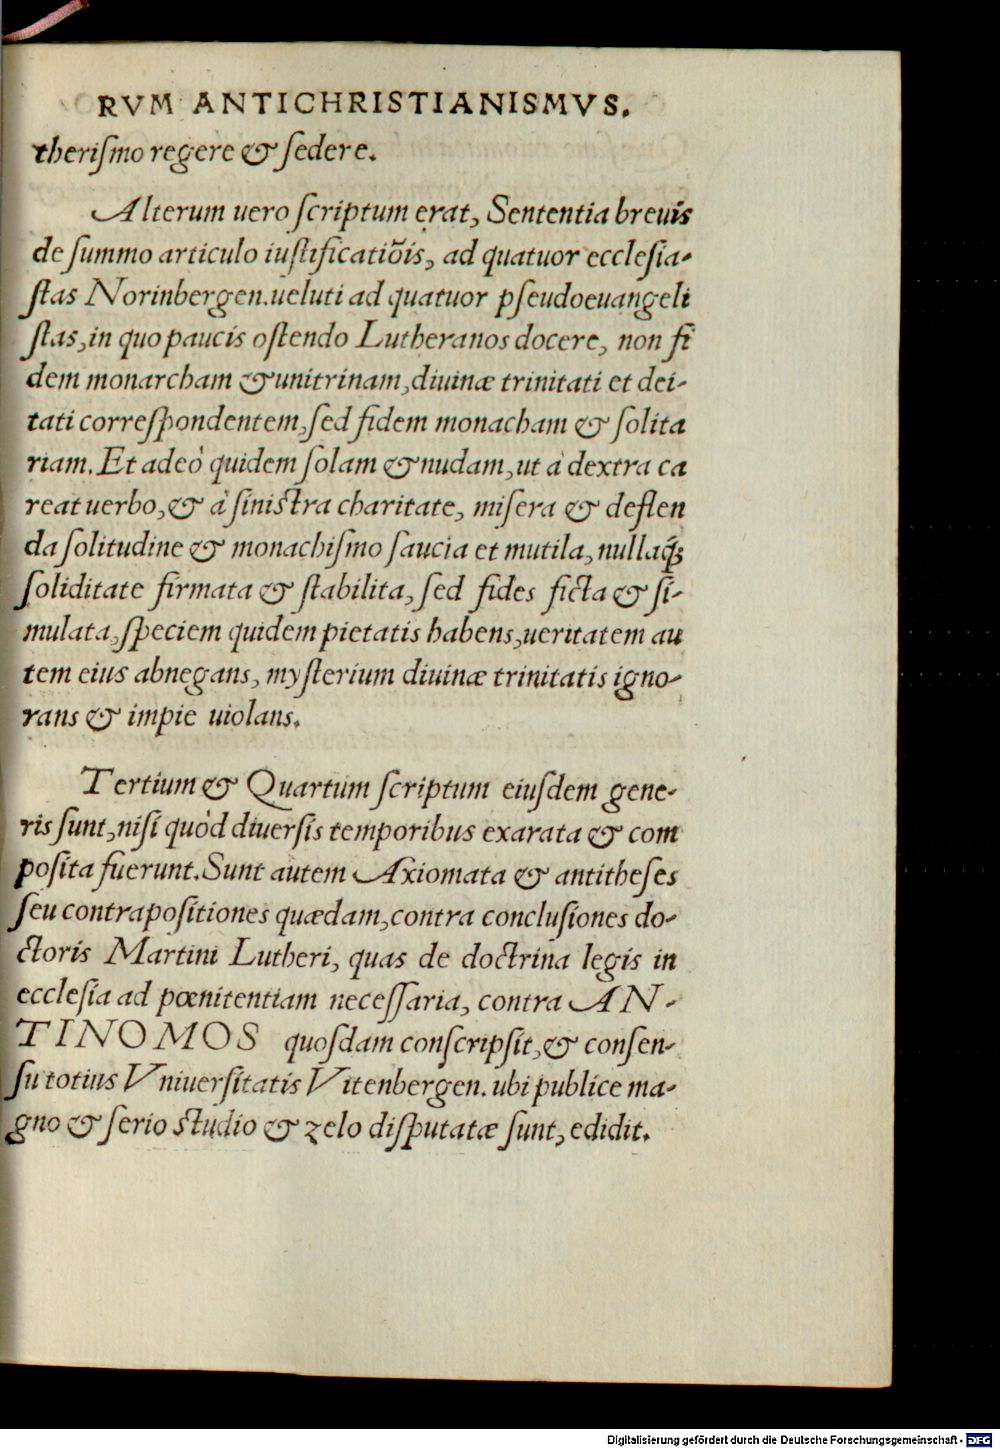 RVM ANTICHRISTIANISMVS.
therismo regere & sedere.
Alterum uero scriptum erat, Sententia breuis
de summo articulo iustificatiõis, ad quatuor ecclesia-
stas Norinbergen. ueluti ad quatuor pseudoeuangeli
stas, in quo paucis ostendo Lutheranos docere, non fi
dem monarcham & unitrinam, diuinæ trinitati et dei-
tati correspondentem, sed fidem monacham & solita
riam. Et adeò quidem solam & nudam, ut à dextra ca
reat uerbo, & à sinistra charitate, misera & deflen
da solitudine & monachismo saucia et mutila, nullaq́;
soliditate firmata & stabilita, sed fides ficta & si-
mulata, speciem quidem pietatis habens, ueritatem au
tem eius abnegans, mysterium diuinæ trinitatis igno-
rans & impie uiolans.
Tertium & Quartum scriptum eiusdem gene-
ris sunt, nisi quòd diuersis temporibus exarata & com
posita fuerunt. Sunt autem Axiomata & antitheses
seu contrapositiones quædam, contra conclusiones do-
ctoris Martini Lutheri, quas de doctrina legis in
ecclesia ad pœnitentiam necessaria, contra AN-
TINOMOS quosdam conscripsit, & consen-
su totius Vniuersitatis Vitenbergen. ubi publice ma-
gno & serio studio & zelo disputatæ sunt, edidit.
Digitalisierung gefördert durch die Deutsche Forschungsgemeinschaft - DFG